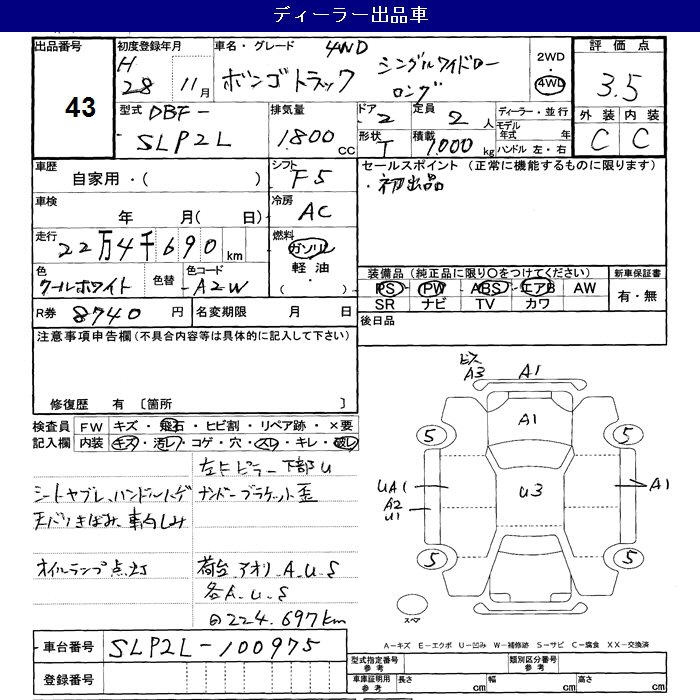 ディーラー出品車
出品番号 43
初度登録年月 H 28年 11月
車名・グレード 4WD ボンゴトラック シングルワイドロー ロング
2WD 4WD
評価点 3.5
型式 DBF- SLP2L
排気量 1.800 cc
ドア 2 定員 2人
形状 T 積載 1000 kg
ディーラー・並行
モデル年式 年
ハンドル 左・右
外装 内装
C C
車歴 自家用・( )
シフト F5
セールスポイント (正常に機能するものに限ります)
・初出品
車検 年 月( 日)
冷房 AC
走行 22万4千690km
燃料 ガソリン 軽油 ・( )
色 クールホワイト 色替 色コード A2W
装備品 (純正品に限り○をつけてください) 新車保証書
PS PW ABS エアB AW 有・無
SR ナビ TV カワ
R券 8740 円 名変期限 月 日
後日品
注意事項申告欄(不具合内容等は具体的に記入して下さい)
修復歴 有 [箇所 ]
検査員記入欄
FW キズ・飛石・ヒビ割・リペア跡・×要
内装 キズ・汚レ・コゲ・穴・スレ・キレ・破レ
左Bピラー下部U
シートヤブレ、ハンドルハゲ ナンバーブラケット歪
天バリきばみ、車内しみ
オイルランプ点灯 荷台アオリ A.U.S
各A.U.S
224.697km
ビス A3 A1
A1
5 5
UA1 A2 U1 U3 A1
5 5
スペア
A－キズ E－エクボ U－凹み W－補修跡 S－サビ C－腐食 XX－交換済
車台番号 SLP2L-100975
登録番号
型式指定番号 参考 類別区分番号 参考
車庫証明用 参考 長さ cm 幅 cm 高さ cm